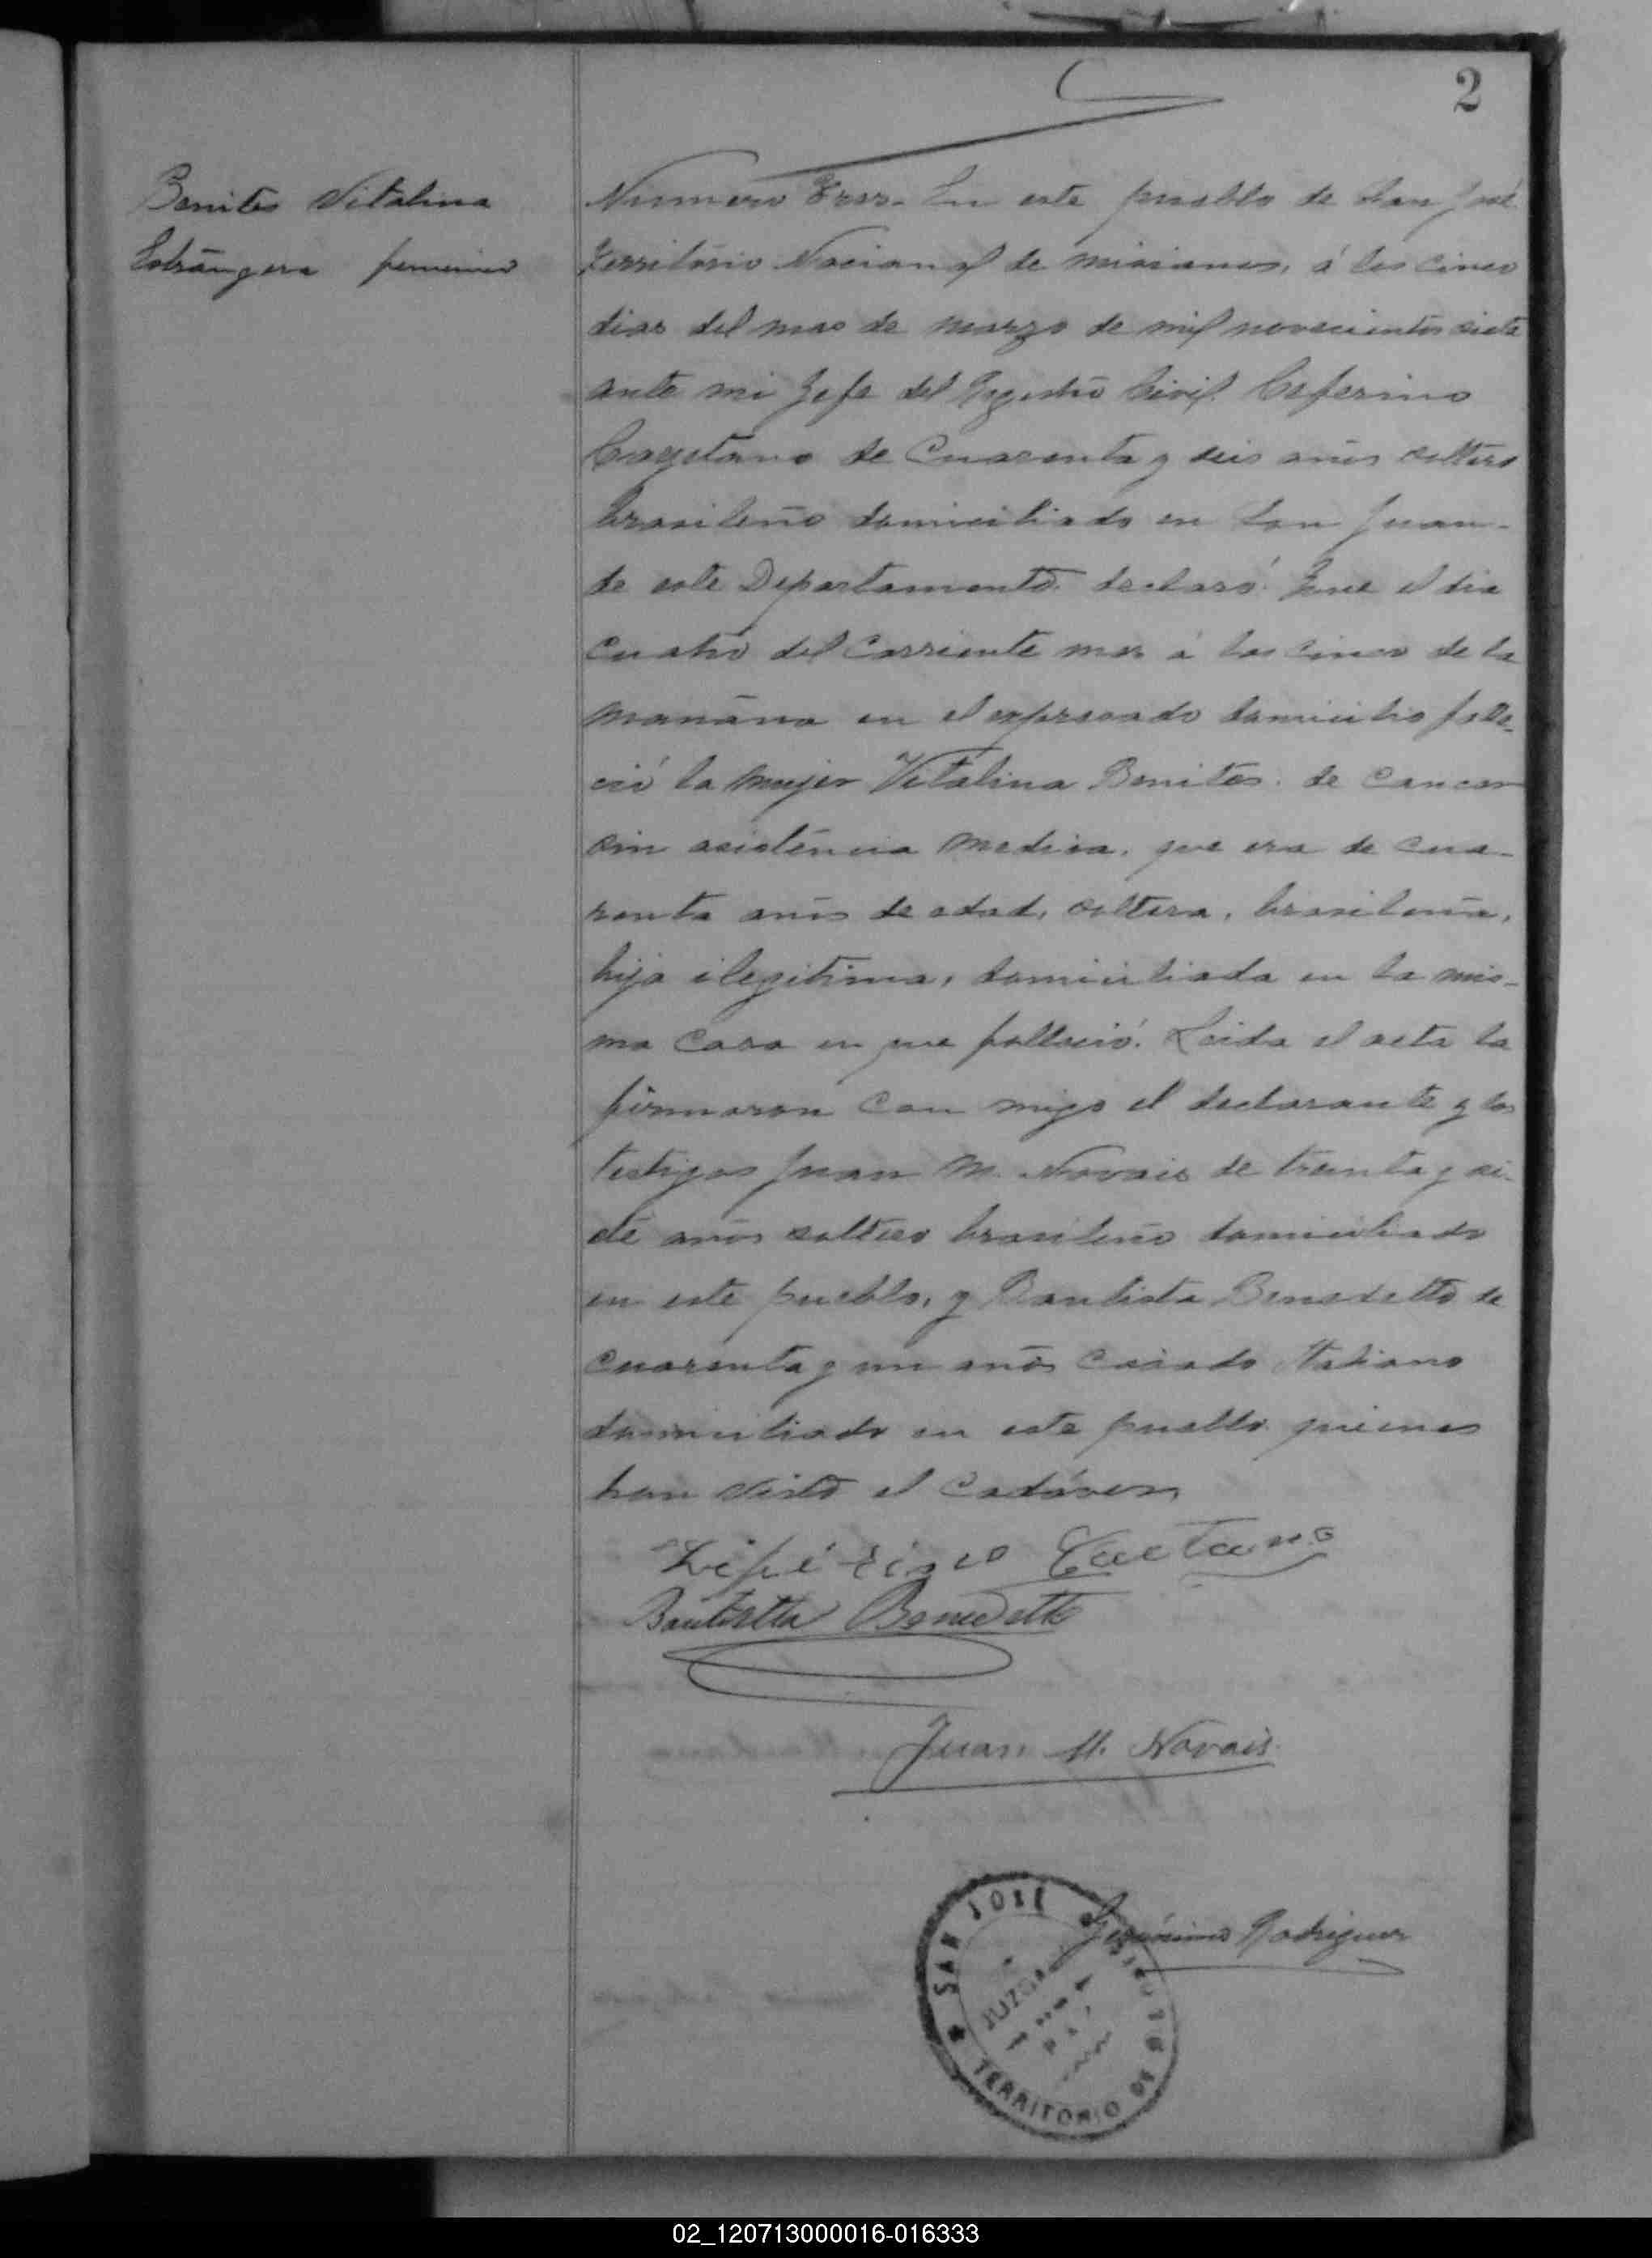 2
Benites Vitalina
Estrangera femenino
Numero Tres. En este pueblo de San José
Território Nacional de misiones, á los cinco
dias del mes de marzo de mil novecientos siete
ante mi Jefe del Registro Civil Ceferino
Cayetano de Cuarenta y seis años soltero
brasileño domiciliado en San Juan
de este Departamento declaró: Que el dia
cuatro del Corriente mes á las cinco de la
mañana en el expresado domicilio falle-
ció la mujer Vitalina Benites de cancer
sin asistencia medica, que era de cua-
renta años de edad, soltera, brasileña,
hija ilegitima, domiciliada en la mis-
ma Casa en que falleció. Leida el acta la
firmaron con migo el declarante y los
testigos Juan M. Novais de treinta y si-
ete años soltero brasileño domiciliado
en este pueblo, y Bautista Benedetto de
Cuarenta y un años Casado Italiano
domiciliado en este pueblo quienes
han visto el Cadáver
Caetano
Bautista Benedetto
Juan M. Novais
Gerónimo Rodriguez
SAN JOSE
JUZGADO
TERRITORIO DE
02_120713000016-016333